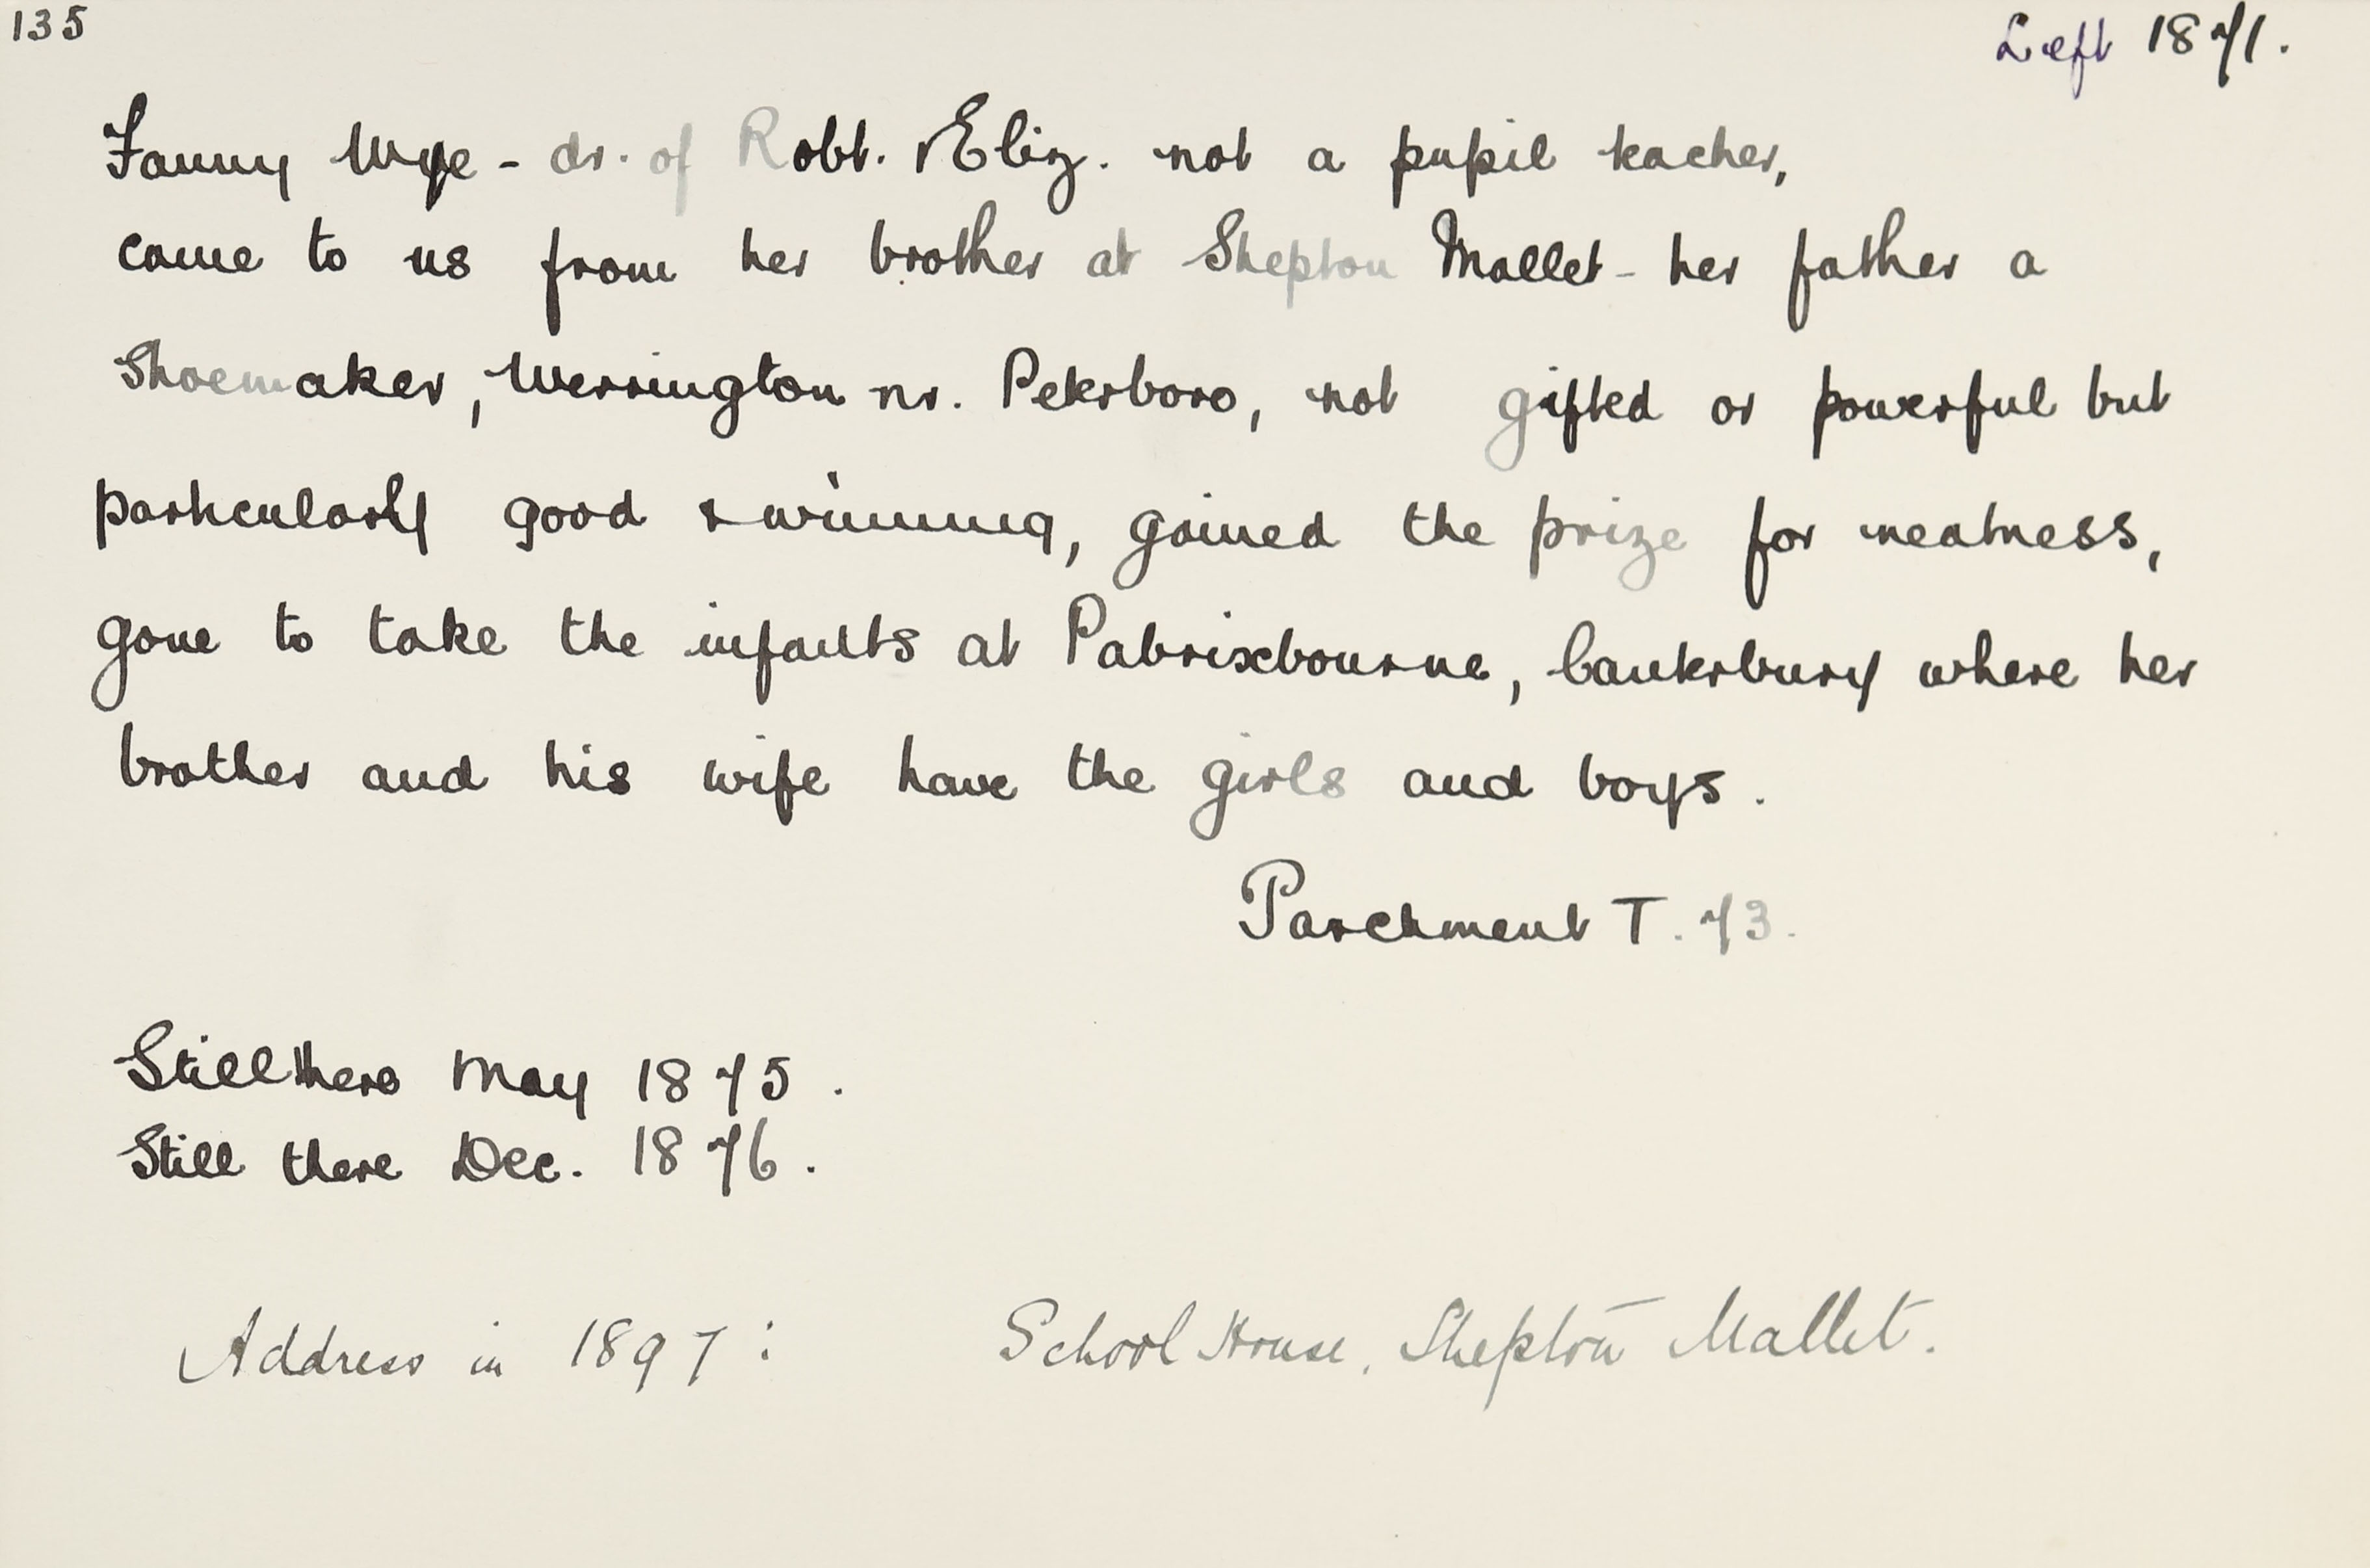 135
Left 1871.
Fanny Wye - dr. of Robt. & Eliz. not a pupil teacher,
came to us from her brother at Shepton Mallet - her father a
Shoemaker, Werrington nr. Peterboro, not gifted or powerful but
particularly good & winning, gained the prize for neatness,
gone to take the infants at Patrixbourne, Canterbury where her
brother and his wife have the girls and boys.
Parchment T. 73.
Still there May 1875.
Still there Dec. 1876.
Address in 1897: School House, Shepton Mallet.